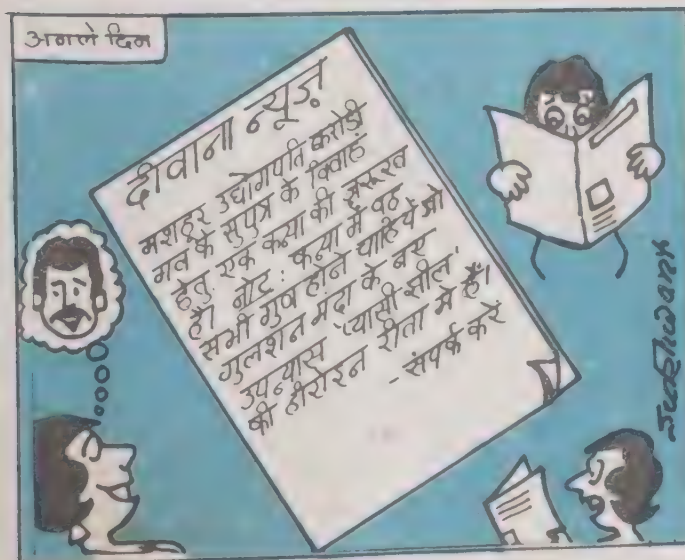 अगले दिन
दीवाना न्यूज़
मशहूर उद्योगपति करोड़ी
मल के सुपुत्र के विवाह
हेतु एक कन्या की ज़रूरत
है। नोट: कन्या में वह
सभी गुण होने चाहियें जो
गुलशन मंदा के नए
उपन्यास 'प्यासी झील'
की हीरोइन रीता में हैं।
- संपर्क करें
Sukhwant